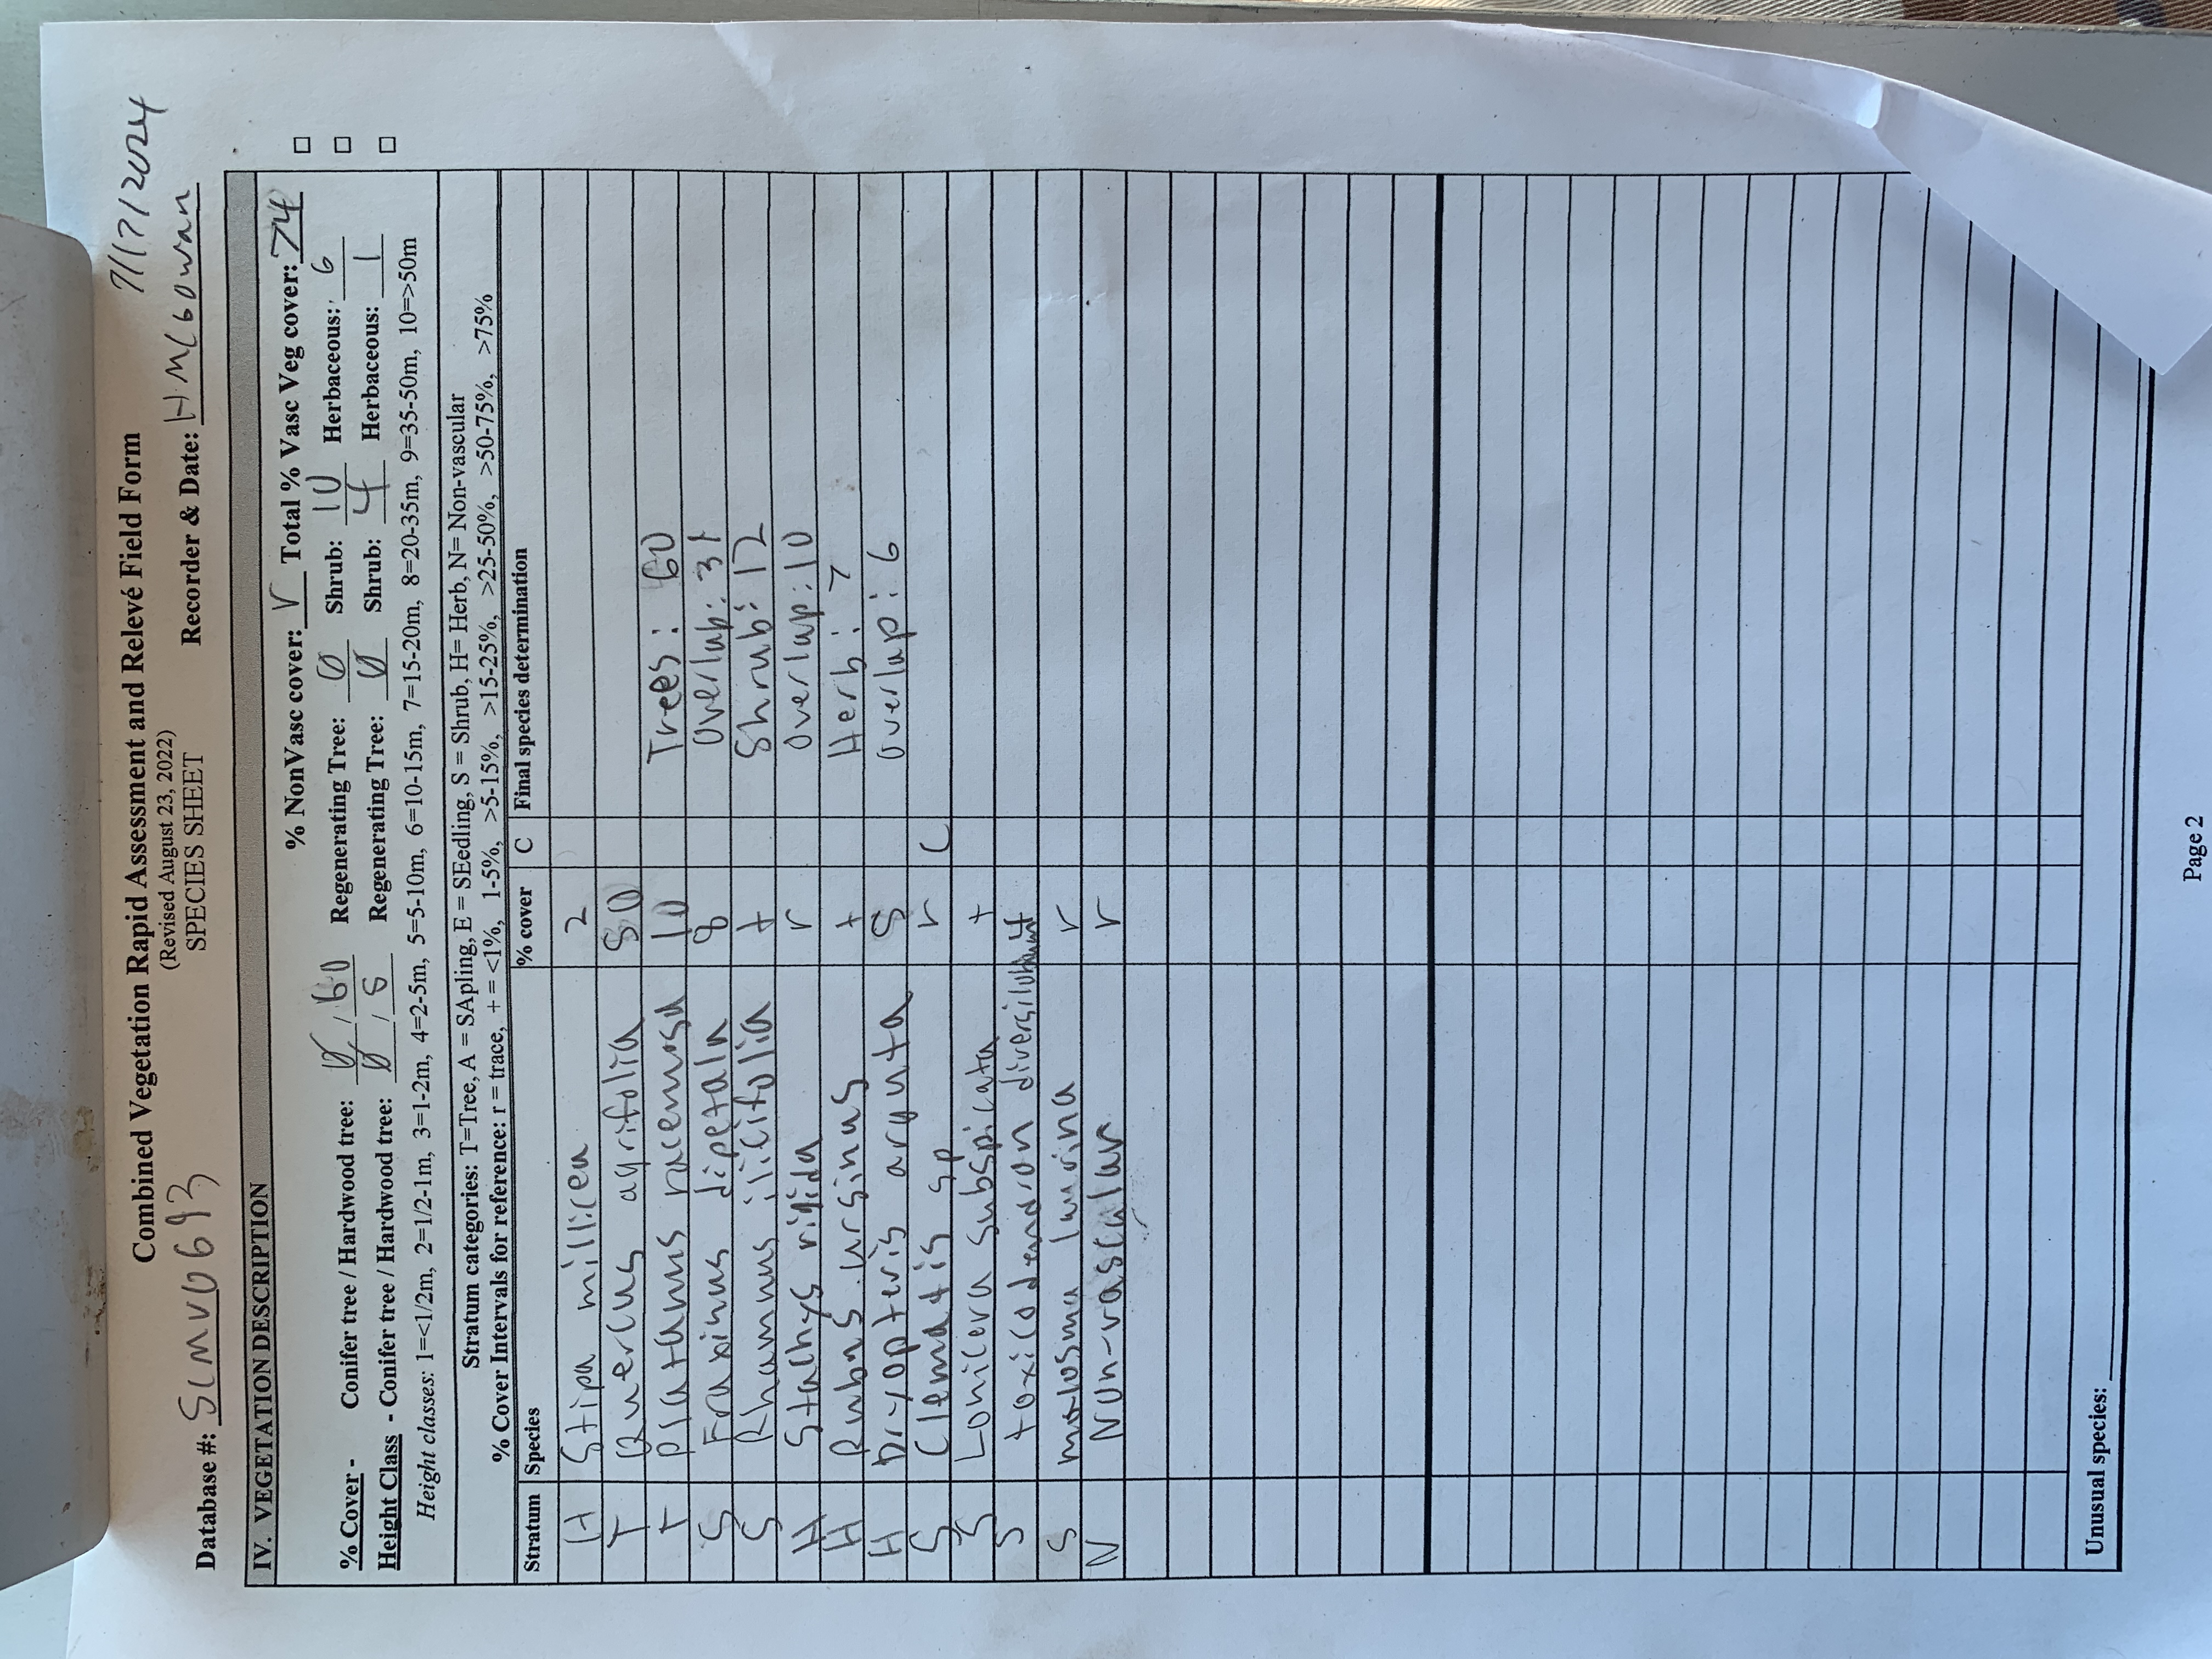 Combined Vegetation Rapid Assessment and Relevé Field Form
(Revised August 23, 2022)
SPECIES SHEET
7/17/2024
Database #: SCMV0693 Recorder & Date: H McGowan
IV. VEGETATION DESCRIPTION
% NonVasc cover: r Total % Vasc Veg cover: 74
% Cover - Conifer tree / Hardwood tree: 0 / 60 Regenerating Tree: 0 Shrub: 10 Herbaceous: 6
Height Class - Conifer tree / Hardwood tree: 0 / 5 Regenerating Tree: 0 Shrub: 4 Herbaceous: 1
Height classes: 1=<1/2m, 2=1/2-1m, 3=1-2m, 4=2-5m, 5=5-10m, 6=10-15m, 7=15-20m, 8=20-35m, 9=35-50m, 10=>50m
Stratum categories: T=Tree, A = SApling, E = SEedling, S = Shrub, H= Herb, N= Non-vascular
% Cover Intervals for reference: r = trace, + = <1%, 1-5%, >5-15%, >15-25%, >25-50%, >50-75%, >75%
Stratum Species % cover C Final species determination
H Stipa millicea 2
T Quercus agrifolia 50
T Platanus racemosa 10 Trees: 60
S Fraxinus dipetala 8 Overlap: 31
S Rhamnus ilicifolia + Shrub: 12
H Stachys rigida r Overlap: 10
H Rubus ursinus + Herb: 7
H Dryopteris arguta 5 Overlap: 6
S Clematis sp r C
S Lonicera subspicata +
S toxicodendron diversilobum +
S malosma laurina r
N Non-vascular r
Unusual species:
Page 2